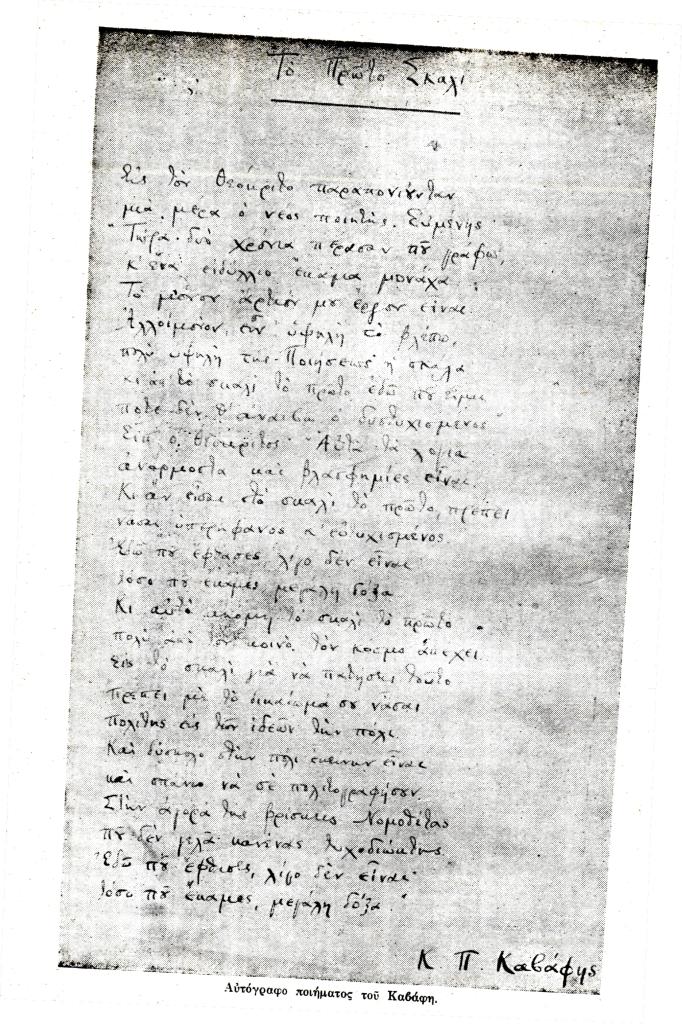 Τὸ Πρῶτο Σκαλὶ
Εἰς τὸν Θεόκριτο παραπονιοῦνταν
μιὰ μέρα ὁ νέος ποιητὴς Εὐμένης·
"Τώρα δυὸ χρόνια πέρασαν ποῦ γράφω,
κ' ἕνα εἰδύλλιο ἔκαμα μονάχα.
Τὸ μόνον ἄρτιόν μου ἔργον εἶναι.
Ἀλλοίμονον, εἶν' ὑψηλὴ τὸ βλέπω,
πολὺ ὑψηλὴ τῆς Ποιήσεως ἡ σκάλα
κι ἀπ' τὸ σκαλὶ τὸ πρῶτο ἐδῶ ποῦ εἶμαι
ποτὲ δὲν θ' ἀναιβῶ ὁ δυστυχισμένος"
Εἶπ' ὁ Θεόκριτος· "Αὐτὰ τὰ λόγια
ἀνάρμοστα καὶ βλασφημίες εἶναι.
Κι ἂν εἶσαι στὸ σκαλὶ τὸ πρῶτο, πρέπει
νἆσαι ὑπερήφανος κ' εὐτυχισμένος.
Ἐδῶ ποῦ ἔφτασες, λίγο δὲν εἶναι·
τόσο ποῦ ἔκαμες, μεγάλη δόξα.
Κι αὐτὸ ἀκόμη τὸ σκαλὶ τὸ πρῶτο
πολὺ ἀπὸ τὸν κοινὸ τὸν κόσμο ἀπέχει.
Εἰς τὸ σκαλὶ γιὰ νὰ πατήσεις τοῦτο
πρέπει μὲ τὸ δικαίωμά σου νἆσαι
πολίτης εἰς τῶν ἰδεῶν τὴν πόλι.
Καὶ δύσκολο στὴν πόλι ἐκείνην εἶναι
καὶ σπάνιο νὰ σὲ πολιτογραφήσουν.
Στὴν ἀγορά της βρίσκεις Νομοθέτας
ποῦ δὲν γελᾶ κανένας τυχοδιώκτης.
Ἐδῶ ποῦ ἔφτασες, λίγο δὲν εἶναι·
τόσο ποῦ ἔκαμες, μεγάλη δόξα."
Κ. Π. Καβάφης
Αὐτόγραφο ποιήματος τοῦ Καβάφη.